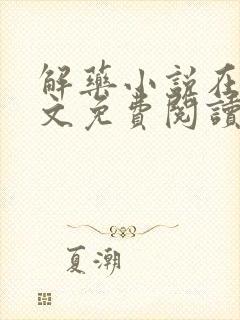 解藥小說在
文免費閱讀
夏潮